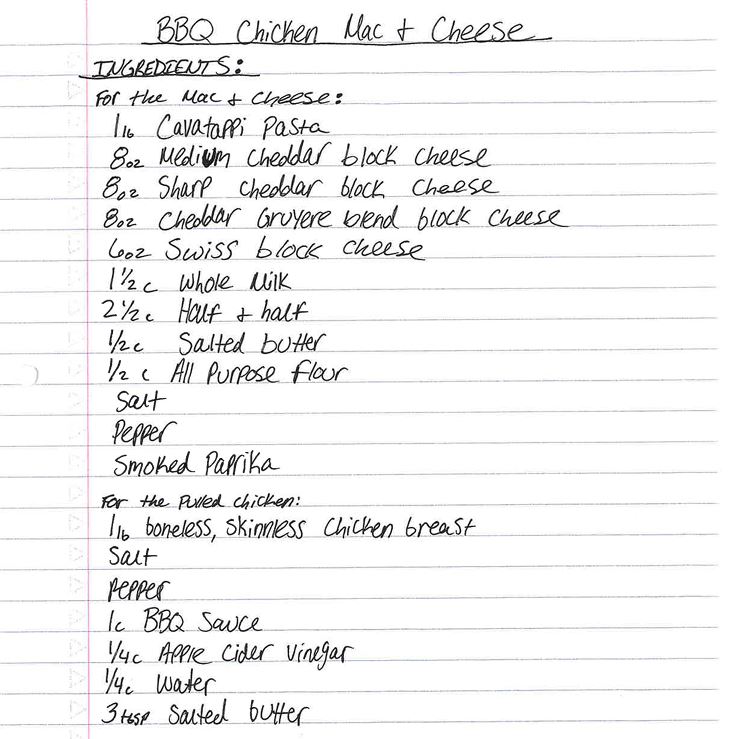 BBQ Chicken Mac & Cheese
INGREDIENTS:
For the Mac & Cheese:
1lb Cavatappi Pasta
8oz Medium cheddar block cheese
8oz Sharp cheddar block cheese
8oz cheddar Gruyere blend block cheese
6oz Swiss block cheese
1½c Whole Milk
2½c Half & half
½c Salted butter
½c All Purpose flour
Salt
Pepper
Smoked Paprika
For the Pulled chicken:
1lb boneless, skinnless chicken breast
Salt
Pepper
1c BBQ Sauce
¼c Apple Cider Vinegar
¼c Water
3tbsp Salted butter